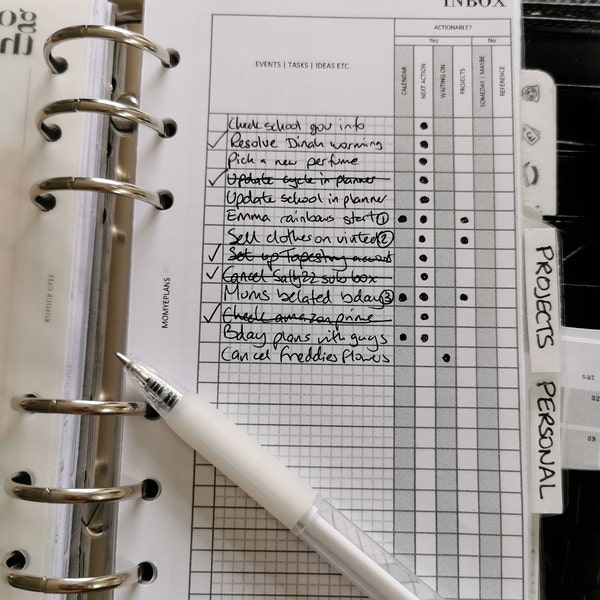 INBOX
ACTIONABLE?
Yes
No
EVENTS | TASKS | IDEAS ETC.
CALENDAR
NEXT ACTION
WAITING ON
PROJECTS
SOMEDAY | MAYBE
REFERENCE
Check school gov info
Resolve Dinah worming
Pick a new perfume
Update cycle in planner
Update school in planner
Emma rainbows start ①
Sell clothes on vinted ②
Set up Tapestry account
Cancel Sally22 sub box
Mums belated bday ③
Check amazon prime
Bday plans with guys
Cancel Freddies flowers
MOMYEPLANS
PROJECTS
PERSONAL
sat
02
09